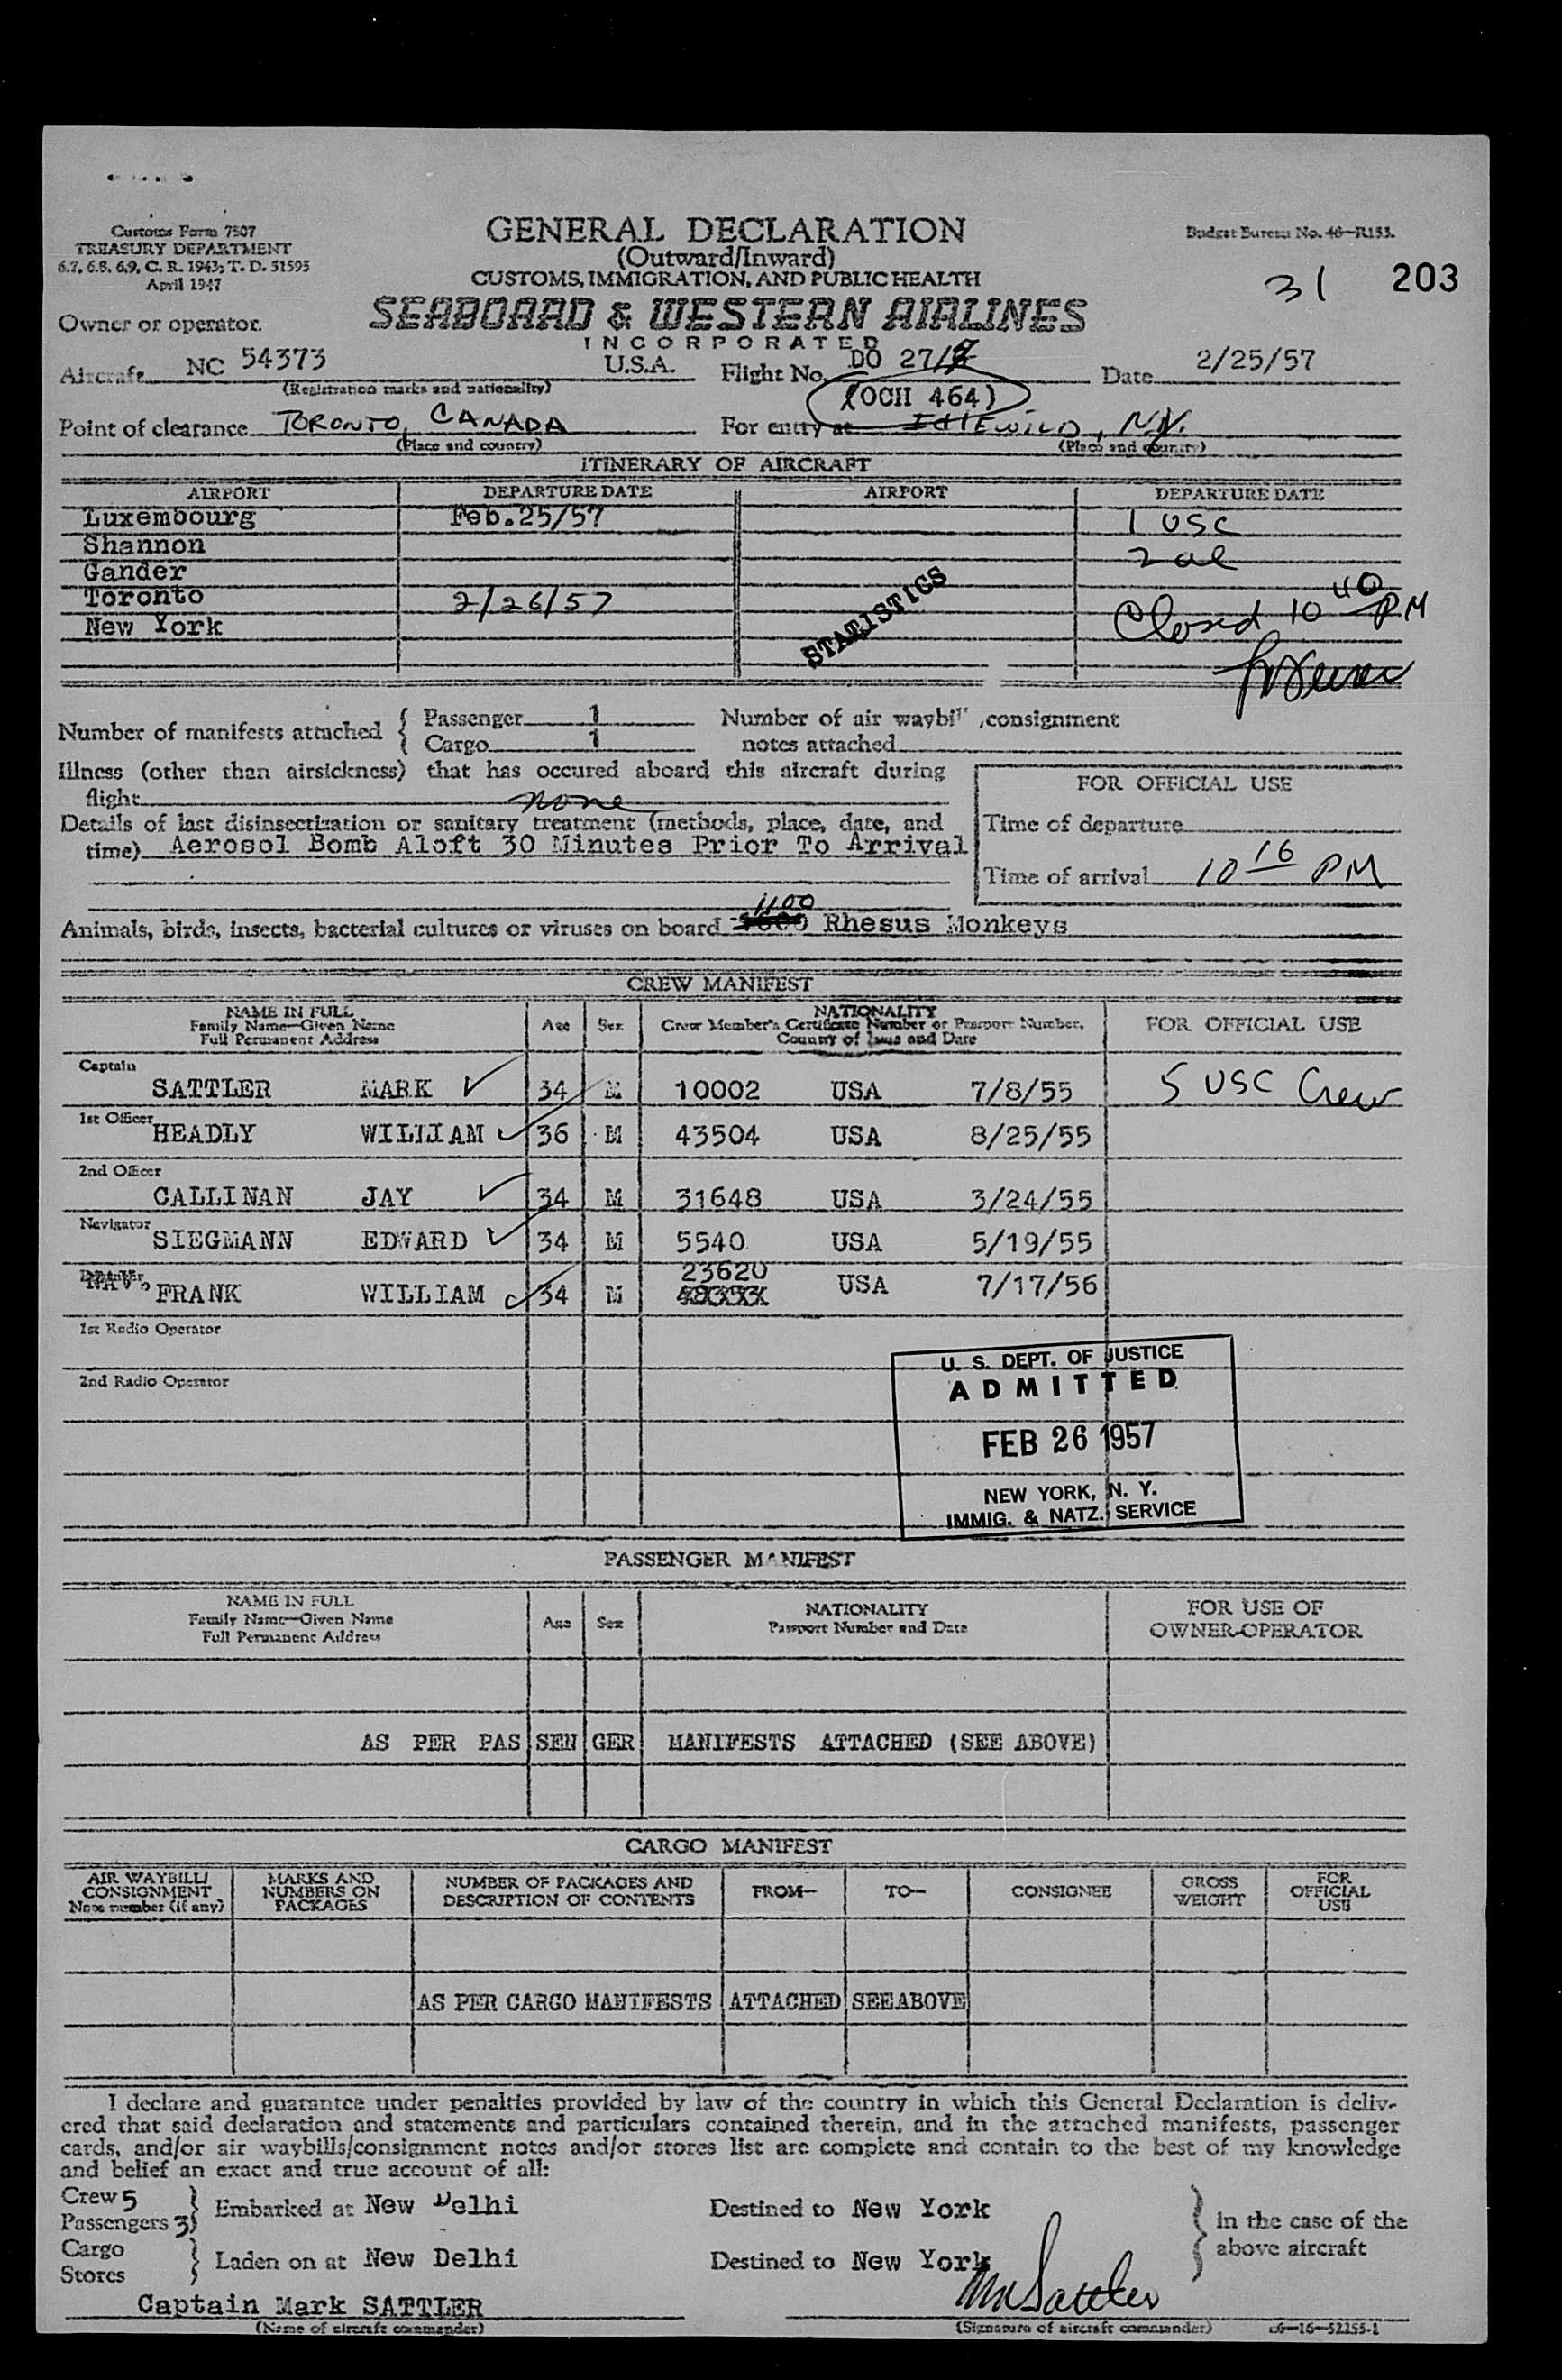 Customs Form 7507
TREASURY DEPARTMENT
6.7, 6.8, 6.9, C. R. 1943; T. D. 51595
April 1947
GENERAL DECLARATION
(Outward/Inward)
CUSTOMS, IMMIGRATION, AND PUBLIC HEALTH
SEABOARD & WESTERN AIRLINES
INCORPORATED
Budget Bureau No. 48—R153.
31 203
Owner or operator.
Aircraft NC 54373 U.S.A. Flight No. DO 27/ Date 2/25/57
(Registration marks and nationality)
(OCH 464)
Point of clearance TORONTO, CANADA For entry at IDLEWILD, N.Y.
(Place and country) (Place and country)
ITINERARY OF AIRCRAFT
AIRPORT DEPARTURE DATE AIRPORT DEPARTURE DATE
Luxembourg Feb.25/57 1 USC
Shannon 2 al
Gander
Toronto 2/26/57 STATISTICS Closed 10 40 PM
New York
Number of manifests attached { Passenger 1 Number of air waybill ,consignment
Cargo 1 notes attached
Illness (other than airsickness) that has occured aboard this aircraft during
flight none
FOR OFFICIAL USE
Details of last disinsectization or sanitary treatment (methods, place, date, and
time) Aerosol Bomb Aloft 30 Minutes Prior To Arrival
Time of departure
Time of arrival 10 16 PM
1100
Animals, birds, insects, bacterial cultures or viruses on board Rhesus Monkeys
CREW MANIFEST
NAME IN FULL
Family Name—Given Name
Full Permanent Address
Age
Sex
NATIONALITY
Crew Member's Certificate Number or Passport Number,
Country of Issue and Date
FOR OFFICIAL USE
Captain
SATTLER MARK ✓ 34 M 10002 USA 7/8/55 5 USC Crew
1st Officer
HEADLY WILLIAM ✓ 36 M 43504 USA 8/25/55
2nd Officer
CALLINAN JAY ✓ 34 M 31648 USA 3/24/55
Navigator
SIEGMANN EDWARD ✓ 34 M 5540 USA 5/19/55
NAV. FRANK WILLIAM ✓ 34 M 23620 USA 7/17/56
1st Radio Operator
2nd Radio Operator
U. S. DEPT. OF JUSTICE
ADMITTED
FEB 26 1957
NEW YORK, N. Y.
IMMIG. & NATZ. SERVICE
PASSENGER MANIFEST
NAME IN FULL
Family Name—Given Name
Full Permanent Address
Age
Sex
NATIONALITY
Passport Number and Date
FOR USE OF
OWNER-OPERATOR
AS PER PAS SEN GER MANIFESTS ATTACHED (SEE ABOVE)
CARGO MANIFEST
AIR WAYBILL/
CONSIGNMENT
Note number (if any)
MARKS AND
NUMBERS ON
PACKAGES
NUMBER OF PACKAGES AND
DESCRIPTION OF CONTENTS
FROM—
TO—
CONSIGNEE
GROSS
WEIGHT
FOR
OFFICIAL
USE
AS PER CARGO MANIFESTS ATTACHED SEE ABOVE
I declare and guarantee under penalties provided by law of the country in which this General Declaration is deliv-
ered that said declaration and statements and particulars contained therein, and in the attached manifests, passenger
cards, and/or air waybills/consignment notes and/or stores list are complete and contain to the best of my knowledge
and belief an exact and true account of all:
Crew 5
Passengers 3 } Embarked at New Delhi Destined to New York
Cargo
Stores } Laden on at New Delhi Destined to New York
} in the case of the
above aircraft
Captain Mark SATTLER M Sattler
(Name of aircraft commander) (Signature of aircraft commander) c6—16—52255-1